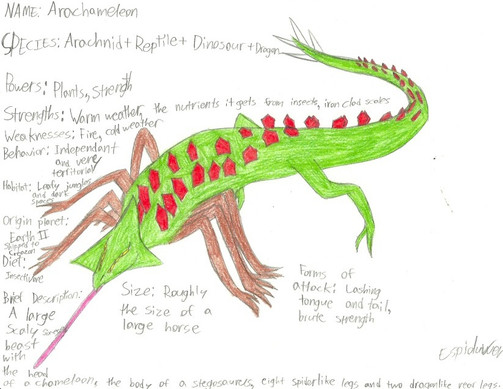 NAME: Arachameleon
SPECIES: Arachnid + Reptile + Dinosaur + Dragon
Powers: Plants, Strength
Strengths: Warm weather, the nutrients it gets from insects, iron clad scales
Weaknesses: Fire, cold weather
Behavior: Independant
and very
territorial
Habitat: Leafy jungles
and dark
spaces
Origin planet:
Earth II
shipped to
Diet:
Insectivore
Brief Description:
A large
Scaly
beast
with
the head
of a chameleon, the body of a stegosaurus, eight spiderlike legs and two dragonlike rear legs.
Size: Roughly
the size of a
large horse
Forms of
attack: Lashing
tongue and tail,
brute strength